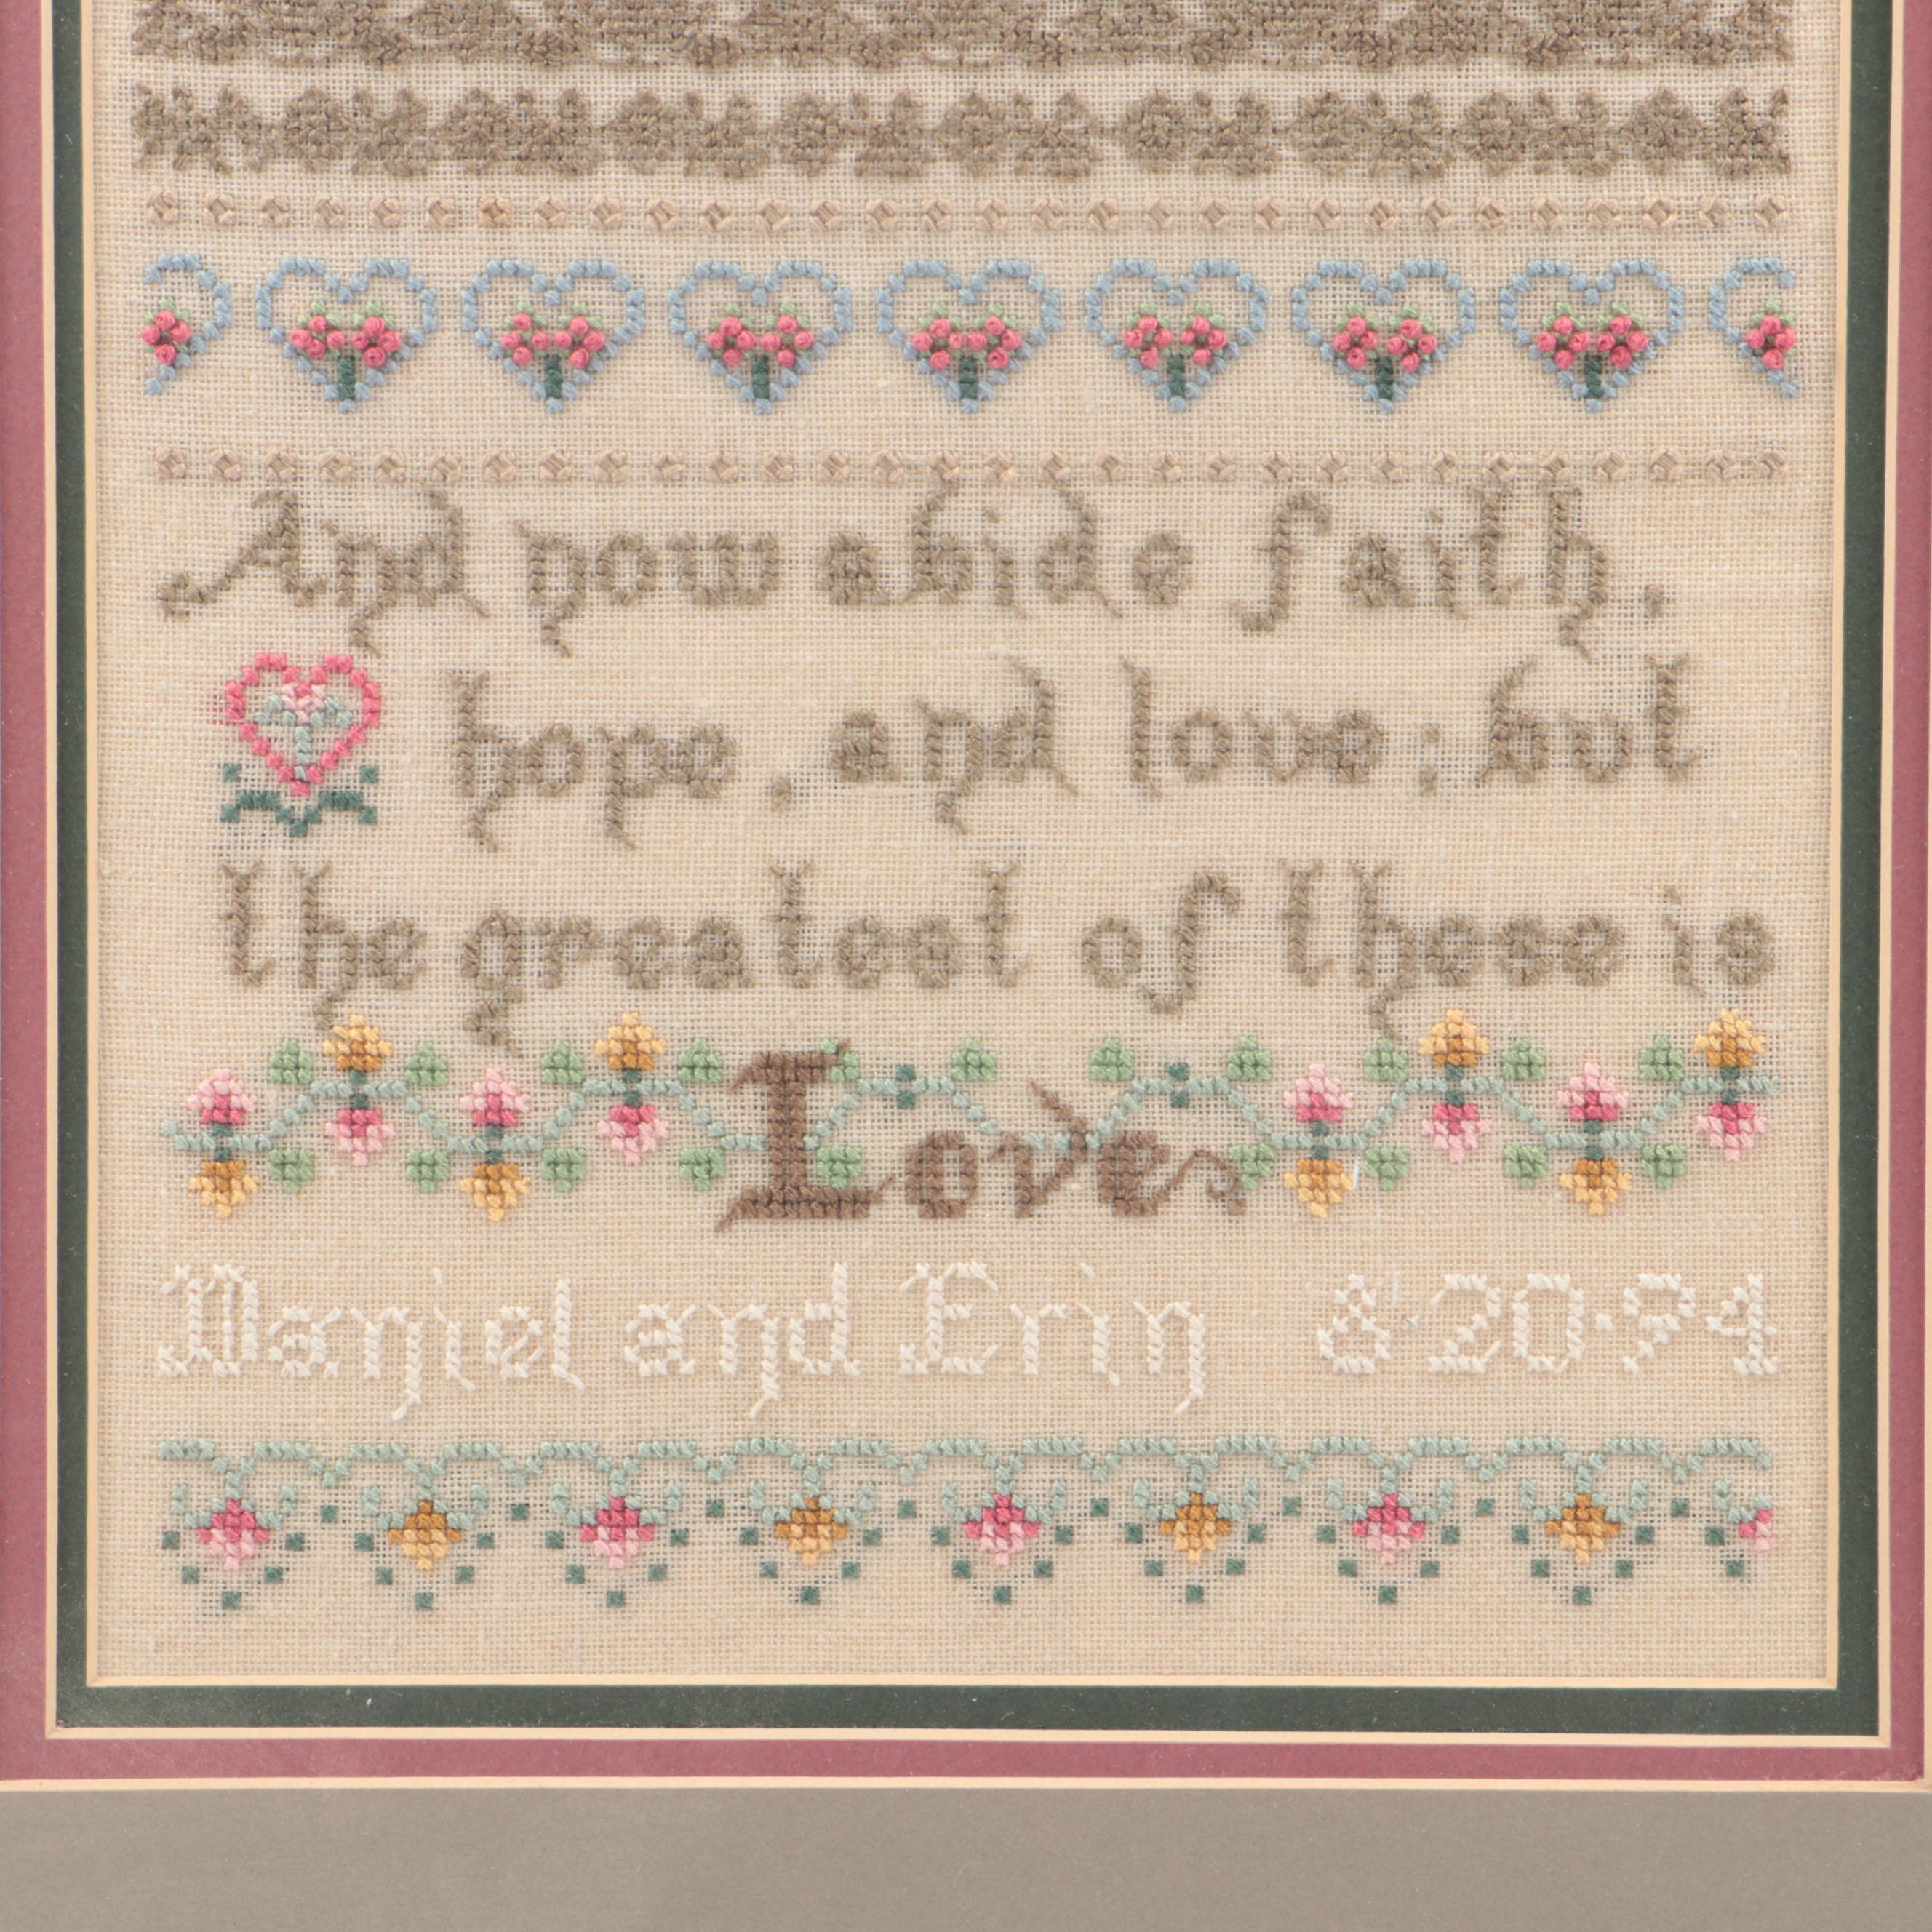 And now abide faith,
hope, and love; but
the greatest of these is
Love
Daniel and Erin 8·20·94